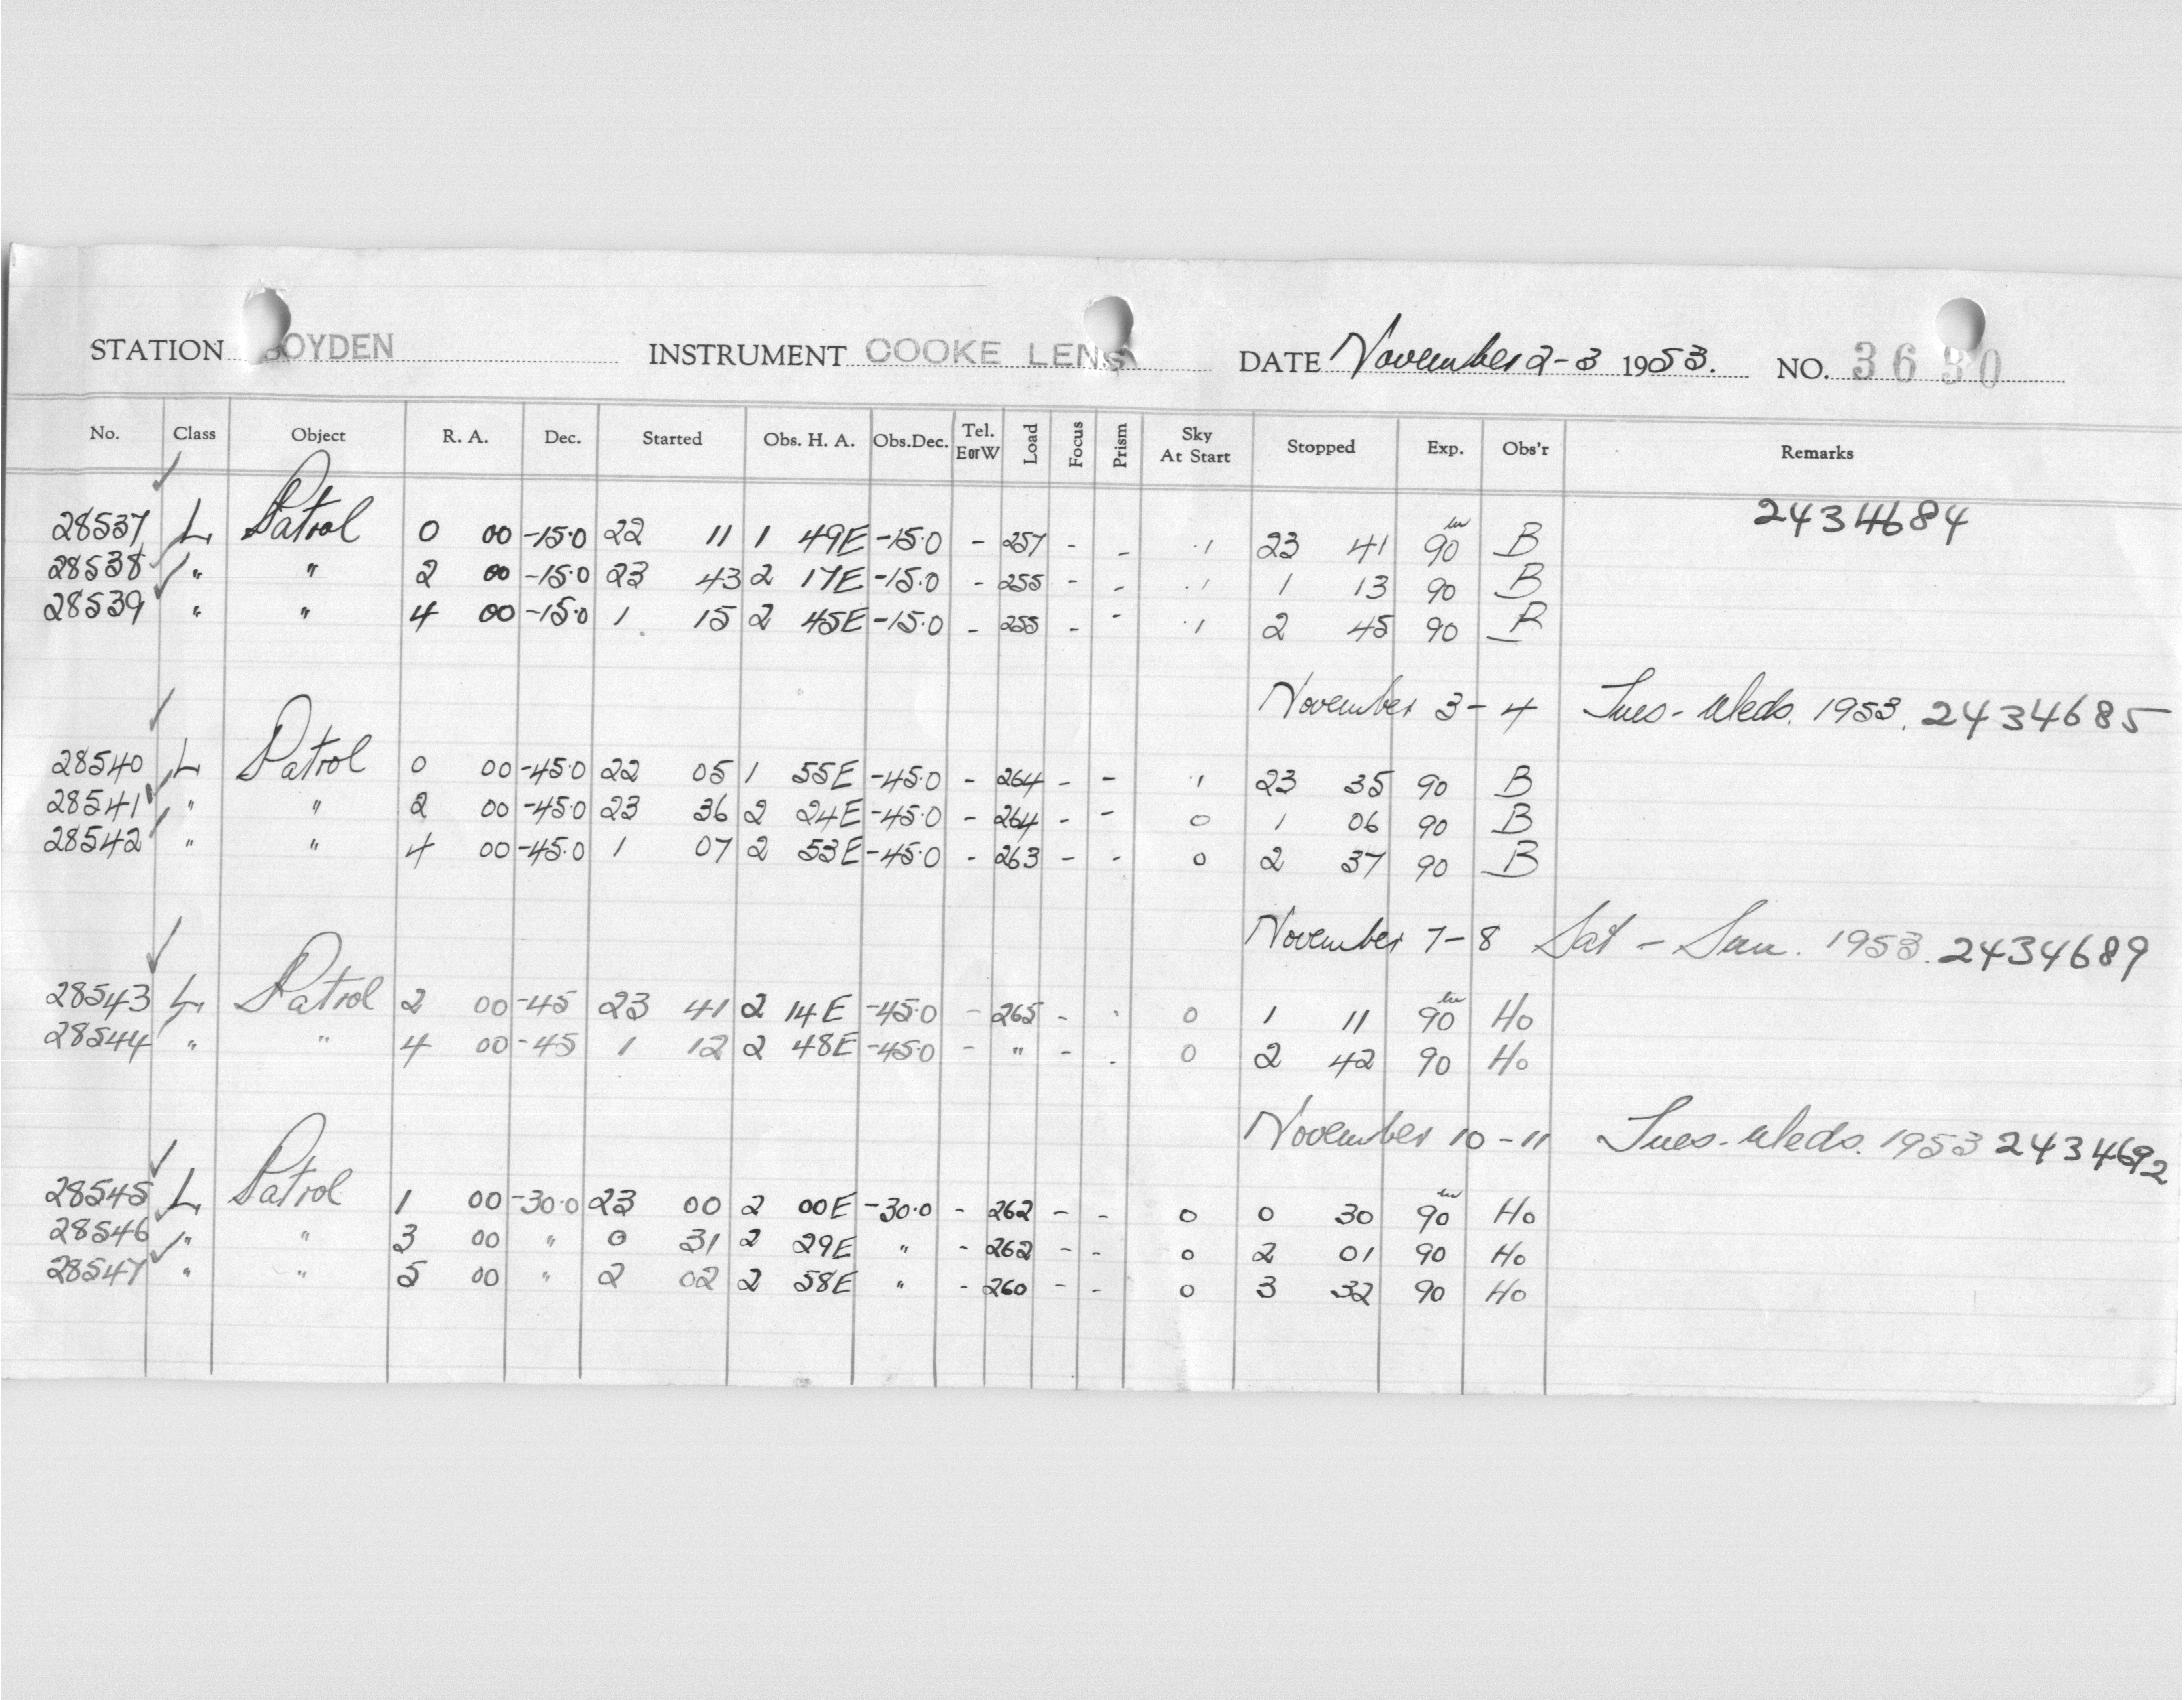 STATION BOYDEN INSTRUMENT COOKE LENS DATE November 2-3 1953. NO. 3630
No. Class Object R. A. Dec. Started Obs. H. A. Obs.Dec. Tel. EorW Load Focus Prism Sky At Start Stopped Exp. Obs'r Remarks
2434684
28537 L Patrol 0 00 -15.0 22 11 1 49E -15.0 - 257 - - .1 23 41 90m B
28538 " " 2 00 -15.0 23 43 2 17E -15.0 - 255 - - .1 1 13 90 B
28539 " " 4 00 -15.0 1 15 2 45E -15.0 - 255 - - .1 2 45 90 B
November 3-4 Tues-Weds. 1953. 2434685
28540 L Patrol 0 00 -45.0 22 05 1 55E -45.0 - 264 - - .1 23 35 90 B
28541 " " 2 00 -45.0 23 36 2 24E -45.0 - 264 - - 0 1 06 90 B
28542 " " 4 00 -45.0 1 07 2 53E -45.0 - 263 - - 0 2 37 90 B
November 7-8 Sat - Sun. 1953. 2434689
28543 L Patrol 2 00 -45 23 41 2 14E -45.0 - 265 - - 0 1 11 90m Ho
28544 " " 4 00 -45 1 12 2 48E -45.0 - " - - 0 2 42 90 Ho
November 10-11 Tues-Weds. 1953 2434692
28545 L Patrol 1 00 -30.0 23 00 2 00E -30.0 - 262 - - 0 0 30 90m Ho
28546 " " 3 00 " 0 31 2 29E " - 262 - - 0 2 01 90 Ho
28547 " " 5 00 " 2 02 2 58E " - 260 - - 0 3 32 90 Ho